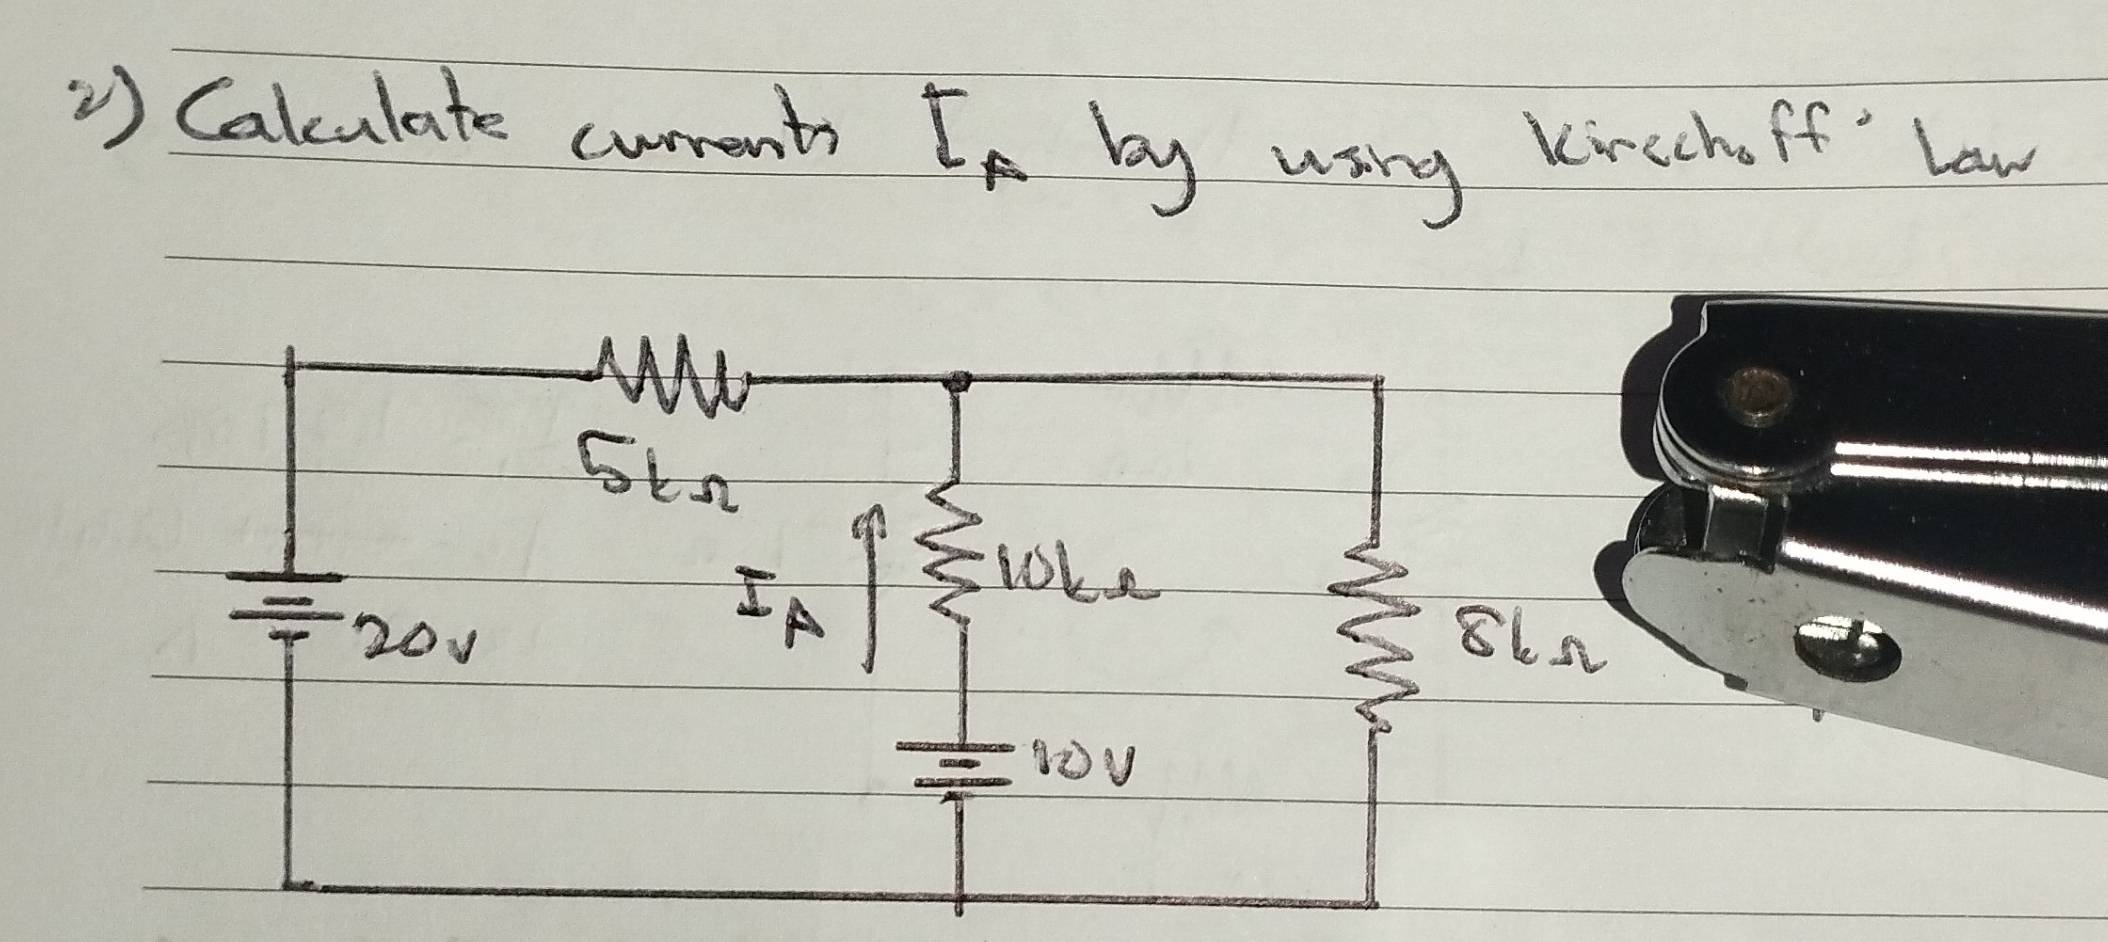 2) Calculate currents I_A by using Kirechoff' Law
5kΩ
I_A
10kΩ
8kΩ
20v
10V